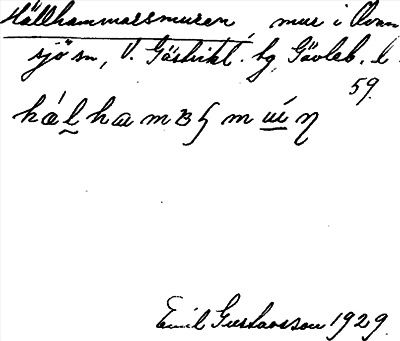 Hällhammarsmuren, mur i Ovan
sjö sn, V. Gästrikl. tg, Gävleb. l.
59.
Emil Gustavsson 1929.